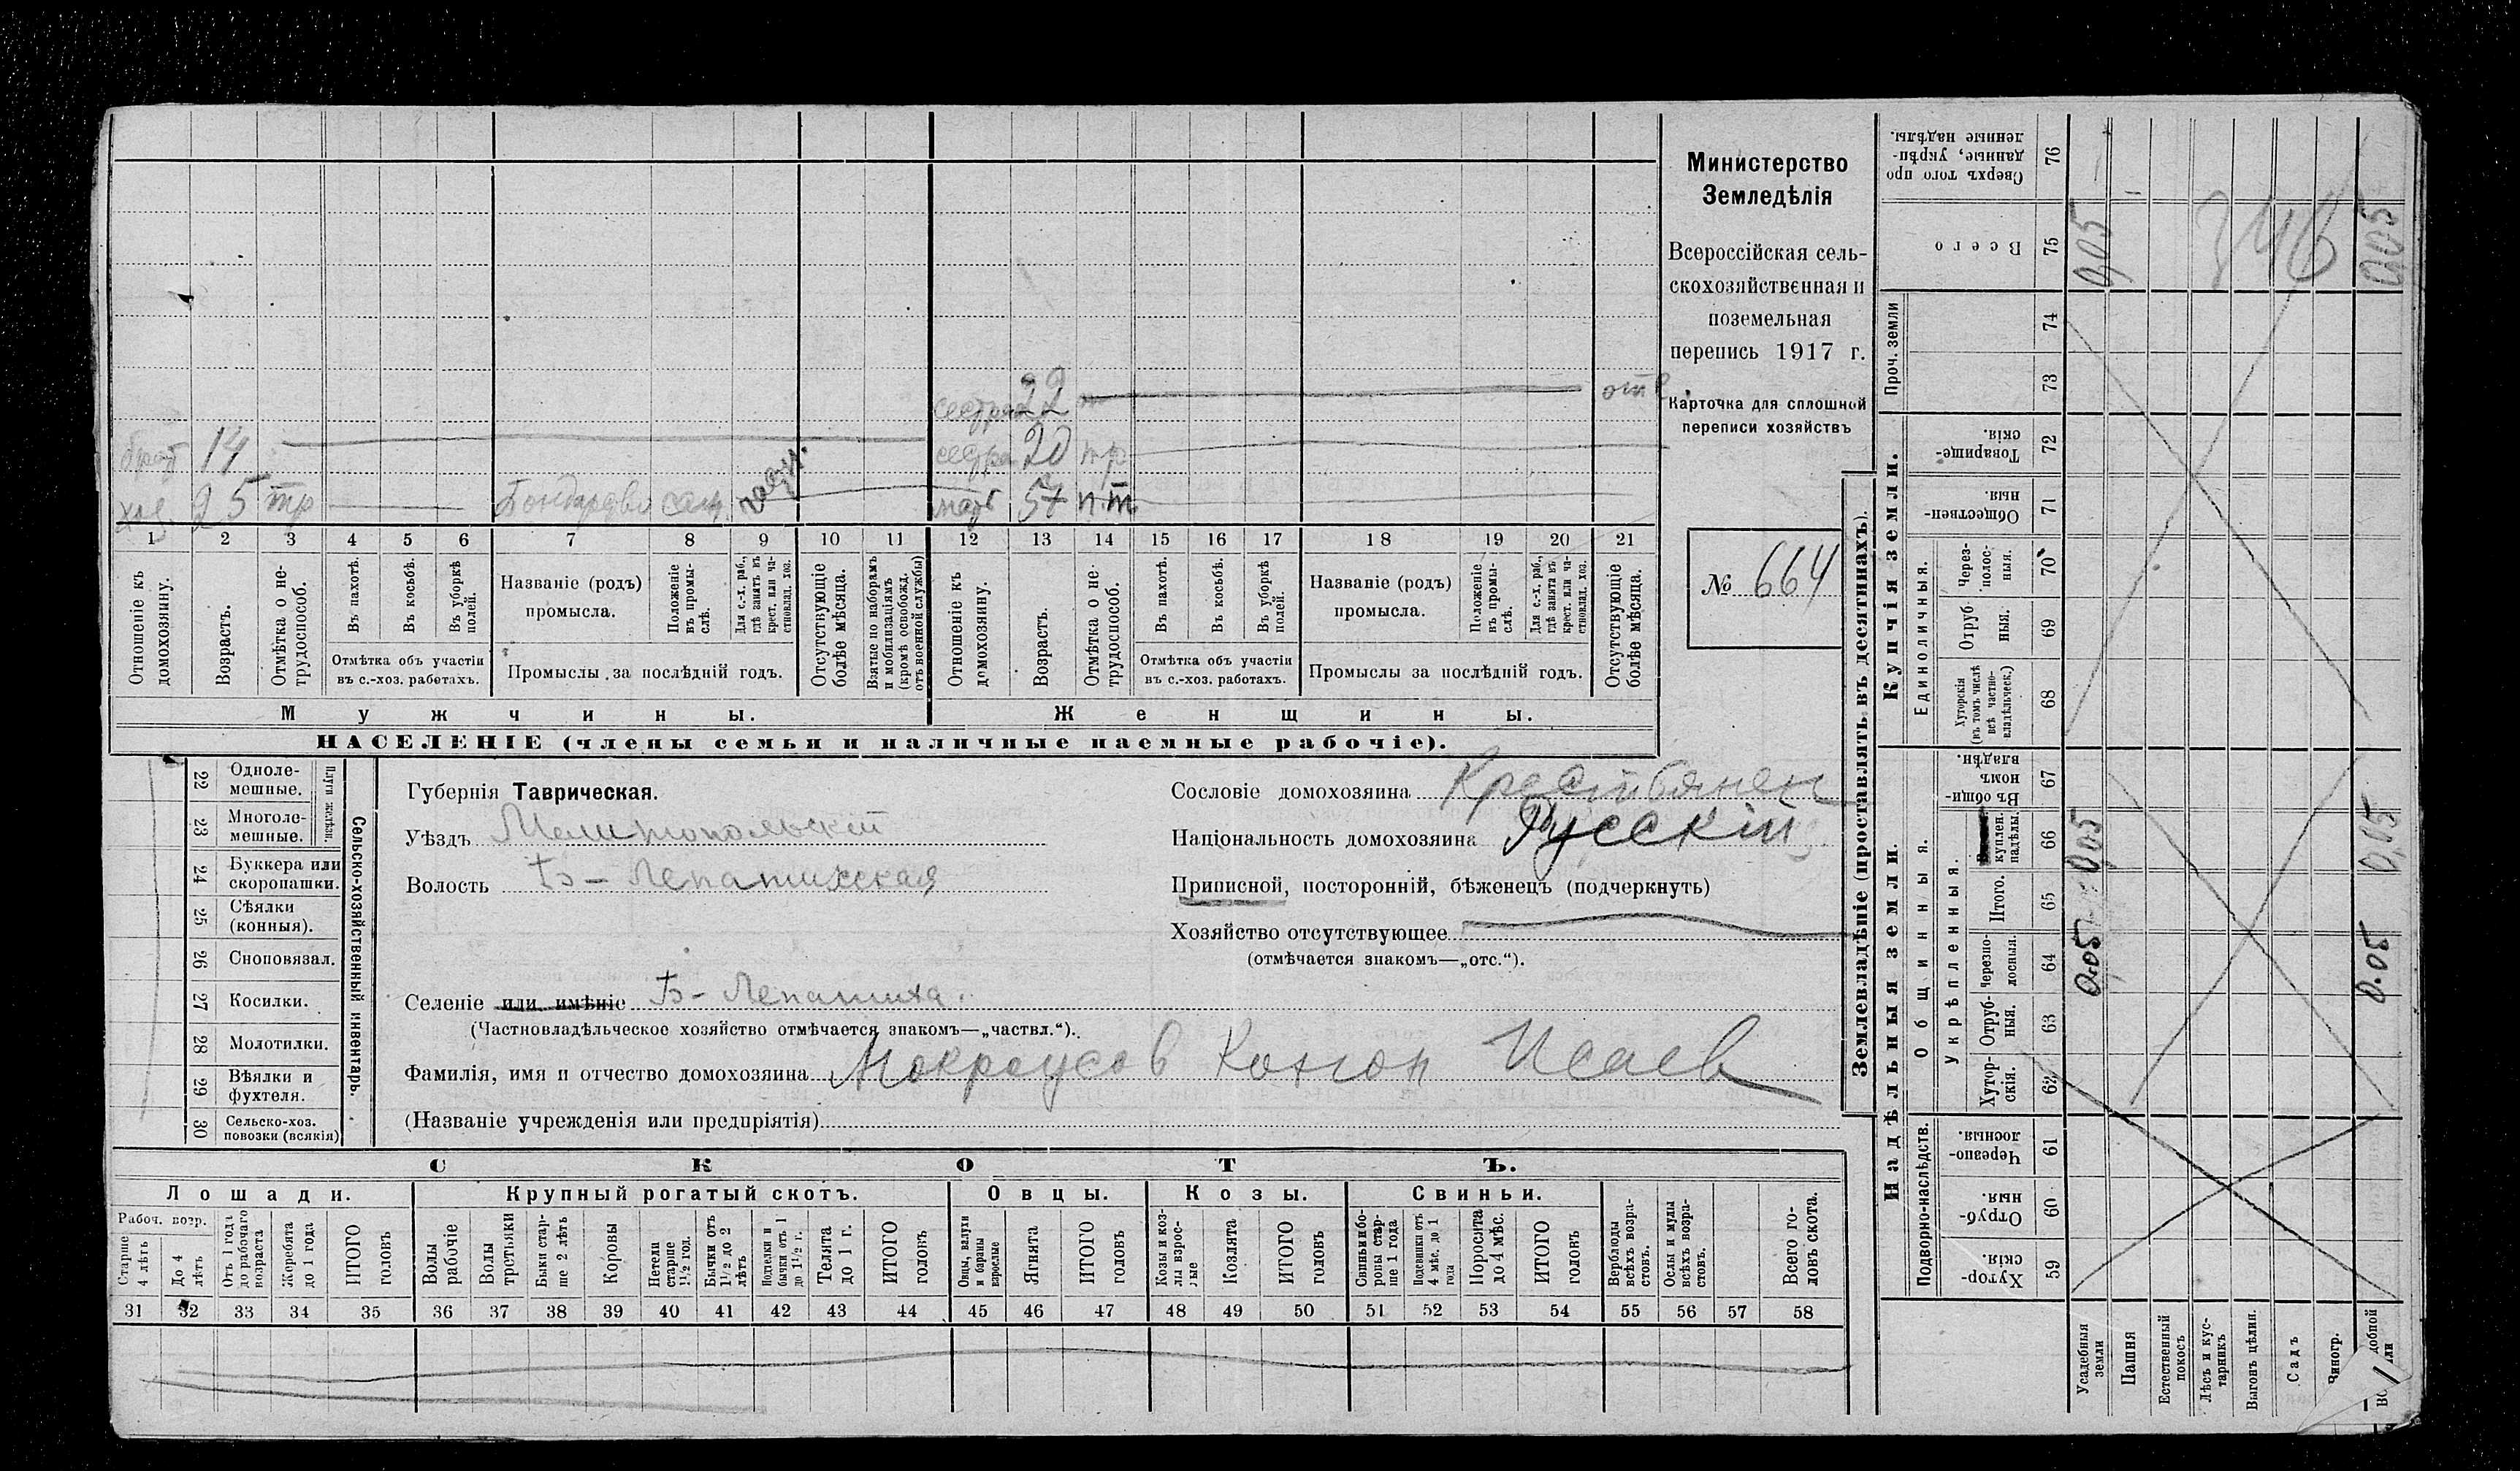 Министерство
Земледѣлія
Всероссійская сель-
скохозяйственная и
поземельная
перепись 1917 г.
Карточка для сплошной
переписи хозяйствъ
№ 664
сестра 22 отс
брат 14
сестра 20 тр
хоз. 25 тр
мать 57 п.т.
1 2 3 4 5 6 7 8 9 10 11 12 13 14 15 16 17 18 19 20 21
Отношеніе къ домохозяину.
Возрастъ.
Отмѣтка о не-трудоспособ.
Въ пахотѣ.
Въ косьбѣ.
Въ уборкѣ полей.
Отмѣтка объ участіи
въ с.-хоз. работахъ.
Названіе (родъ)
промысла.
Положеніе въ промы-слѣ.
Для с.-х. раб., гдѣ занятъ въ крест. или ча-стновлад. хоз.
Промыслы за послѣдній годъ.
Отсутствующіе болѣе мѣсяца.
Взятые по наборамъ и мобилизаціямъ (кромѣ освобожд. отъ военной службы)
Отношеніе къ домохозяину.
Возрастъ.
Отмѣтка о не-трудоспособ.
Въ пахотѣ.
Въ косьбѣ.
Въ уборкѣ полей.
Отмѣтка объ участіи
въ с.-хоз. работахъ.
Названіе (родъ)
промысла.
Положеніе въ промы-слѣ.
Для с.-х. раб., гдѣ занята въ крест. или ча-стновлад. хоз.
Промыслы за послѣдній годъ.
Отсутствующіе болѣе мѣсяца.
Мужчины.
Женщины.
НАСЕЛЕНІЕ (члены семьи и наличные наемные рабочіе).
Сельско-хозяйственный инвентарь.
22 Одноле-мешные.
23 Многоле-мешные.
24 Буккера или скоропашки.
25 Сѣялки (конныя).
26 Сноповязал.
27 Косилки.
28 Молотилки.
29 Вѣялки и фухтеля.
30 Сельско-хоз. повозки (всякія)
Губернія Таврическая.
Уѣздъ Мелитопольскій
Волость Б-Лепатихская
Селеніе или имѣніе Б-Лепатиха.
(Частновладѣльческое хозяйство отмѣчается знакомъ—„частвл.“).
Фамилія, имя и отчество домохозяина Мокроусов Конон Исаев
(Названіе учрежденія или предпріятія)
Сословіе домохозяина Крестьянен
Національность домохозяина Русскій
Приписной, посторонній, бѣженецъ (подчеркнуть)
Хозяйство отсутствующее
(отмѣчается знакомъ—„отс.“).
СКОТЪ.
Лошади.
Крупный рогатый скотъ.
Овцы.
Козы.
Свиньи.
Рабоч. возр.
Старше 4 лѣтъ
До 4 лѣтъ
Отъ 1 года до рабочаго возраста
Жеребята до 1 года
ИТОГО головъ
Волы рабочіе
Волы третьяки
Быки стар-ше 2 лѣтъ
Коровы
Петели старше 1½ год.
Бычки отъ 1½ до 2 лѣтъ
Подтелки и бычки отъ 1 до 1½ г.
Телята до 1 г.
ИТОГО головъ
Овцы, валухи и бараны взрослые
Ягнята
ИТОГО головъ
Козы и коз-лы взрос-лые
Козлята
ИТОГО головъ
Свиньи и бо-ровы стар-ше 1 года
Подсвинки отъ 4 мѣс. до 1 года
Поросята до 4 мѣс.
ИТОГО головъ
Верблюды всѣхъ возра-стовъ.
Ослы и мулы всѣхъ возра-стовъ.
Всего го-ловъ скота.
31 32 33 34 35 36 37 38 39 40 41 42 43 44 45 46 47 48 49 50 51 52 53 54 55 56 57 58
Землевладѣніе (проставлять въ десятинахъ).
Купчія земли.
Надѣльныя земли.
Сверхъ того про-данные, укрѣп-ленные надѣлы. 76
Всего 75 0,05 346 0,05
Проч. земли
74
73
Товарище-скія. 72
Обществен-ныя. 71
Единоличныя.
Через-полос-ныя. 70
Отруб-ныя. 69
Хуторскія (въ томъ числѣ всѣ частно-владѣльческ.) 68
Общинныя.
Въ общин-номъ владѣн. 67
Укрѣпленныя.
куплен. надѣлы. 66 0,05 0,05
Итого. 65
Черезпо-лосныя. 64 0.05 0.05
Отруб-ныя. 63
Хутор-скія. 62
Подворно-наслѣдств.
Черезпо-лосныя. 61
Отруб-ныя. 60
Хутор-скія. 59
Усадебныя земли
Пашня
Естественный покосъ
Лѣсъ и кус-тарникъ
Выгонъ цѣлин.
Садъ